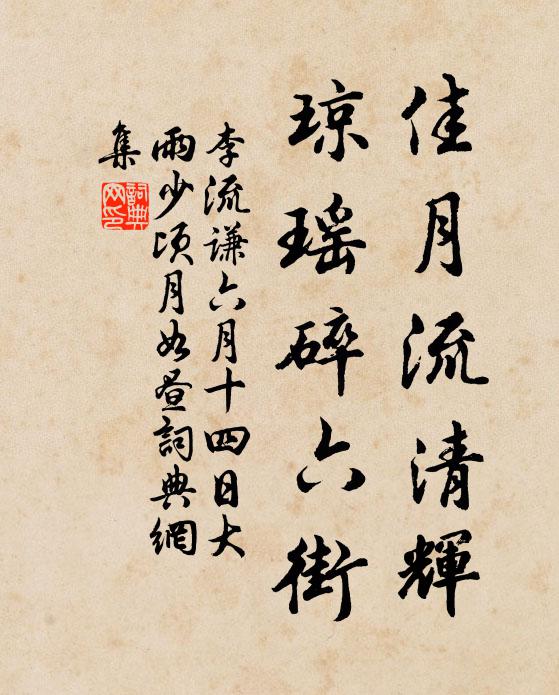 佳月流清輝
琼瑶碎六街
李流谦六月十四日大
雨少顷月如昼詞典網
集
詞典
网印